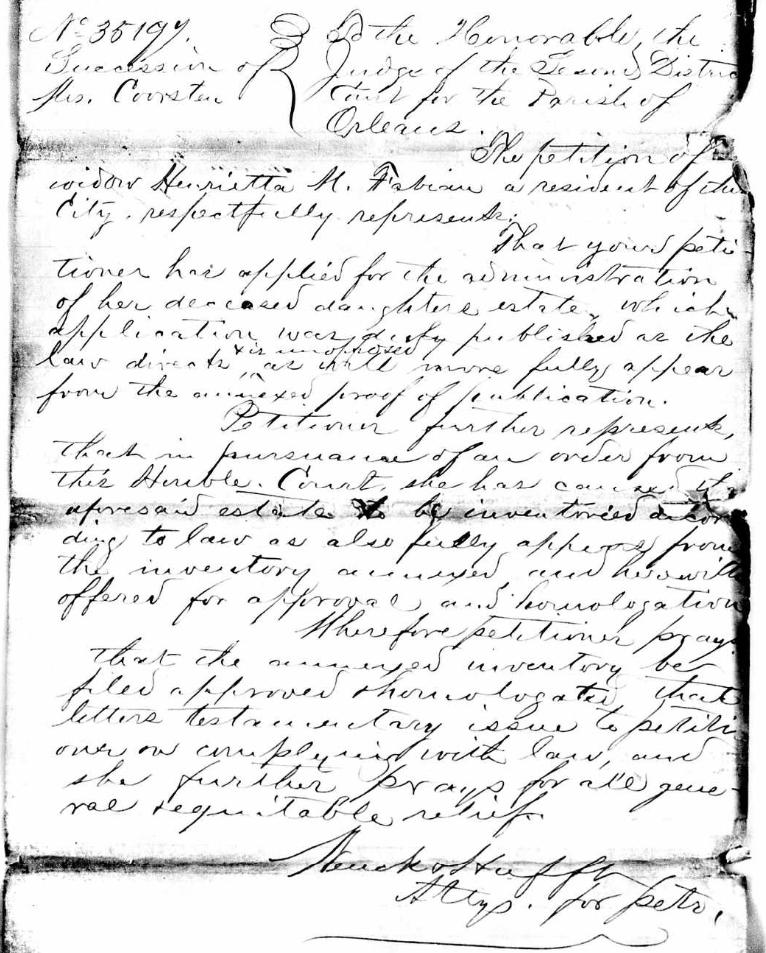 No 35197.
Succession of
Mrs. Coorsten
To the Honorable, the
Judge of the Second Distric
Court for the Parish of
Orleans.
The petition of
widow Henrietta M. Fabian a resident of this
City, respectfully represents:
That your peti-
tioner has applied for the administration
of her deceased daughters estate, which
application was duly published as the
law directs, & is unopposed as will more fully appear
from the annexed proof of publication.
Petitioner further represents,
that in pursuance of an order from
this Honble. Court, she has caused the
aforesaid estate to be inventoried accor
ding to law as also fully appears from
the inventory annexed, and herewith
offered for approval and homologation
Wherefore petitioner prays
that the annexed inventory be
filed approved & homologated, that
letters testamentary issue to petiti
oner on complying with law, and
she further prays for all gene-
ral & equitable relief.
& Hufft
Attys. for petr.